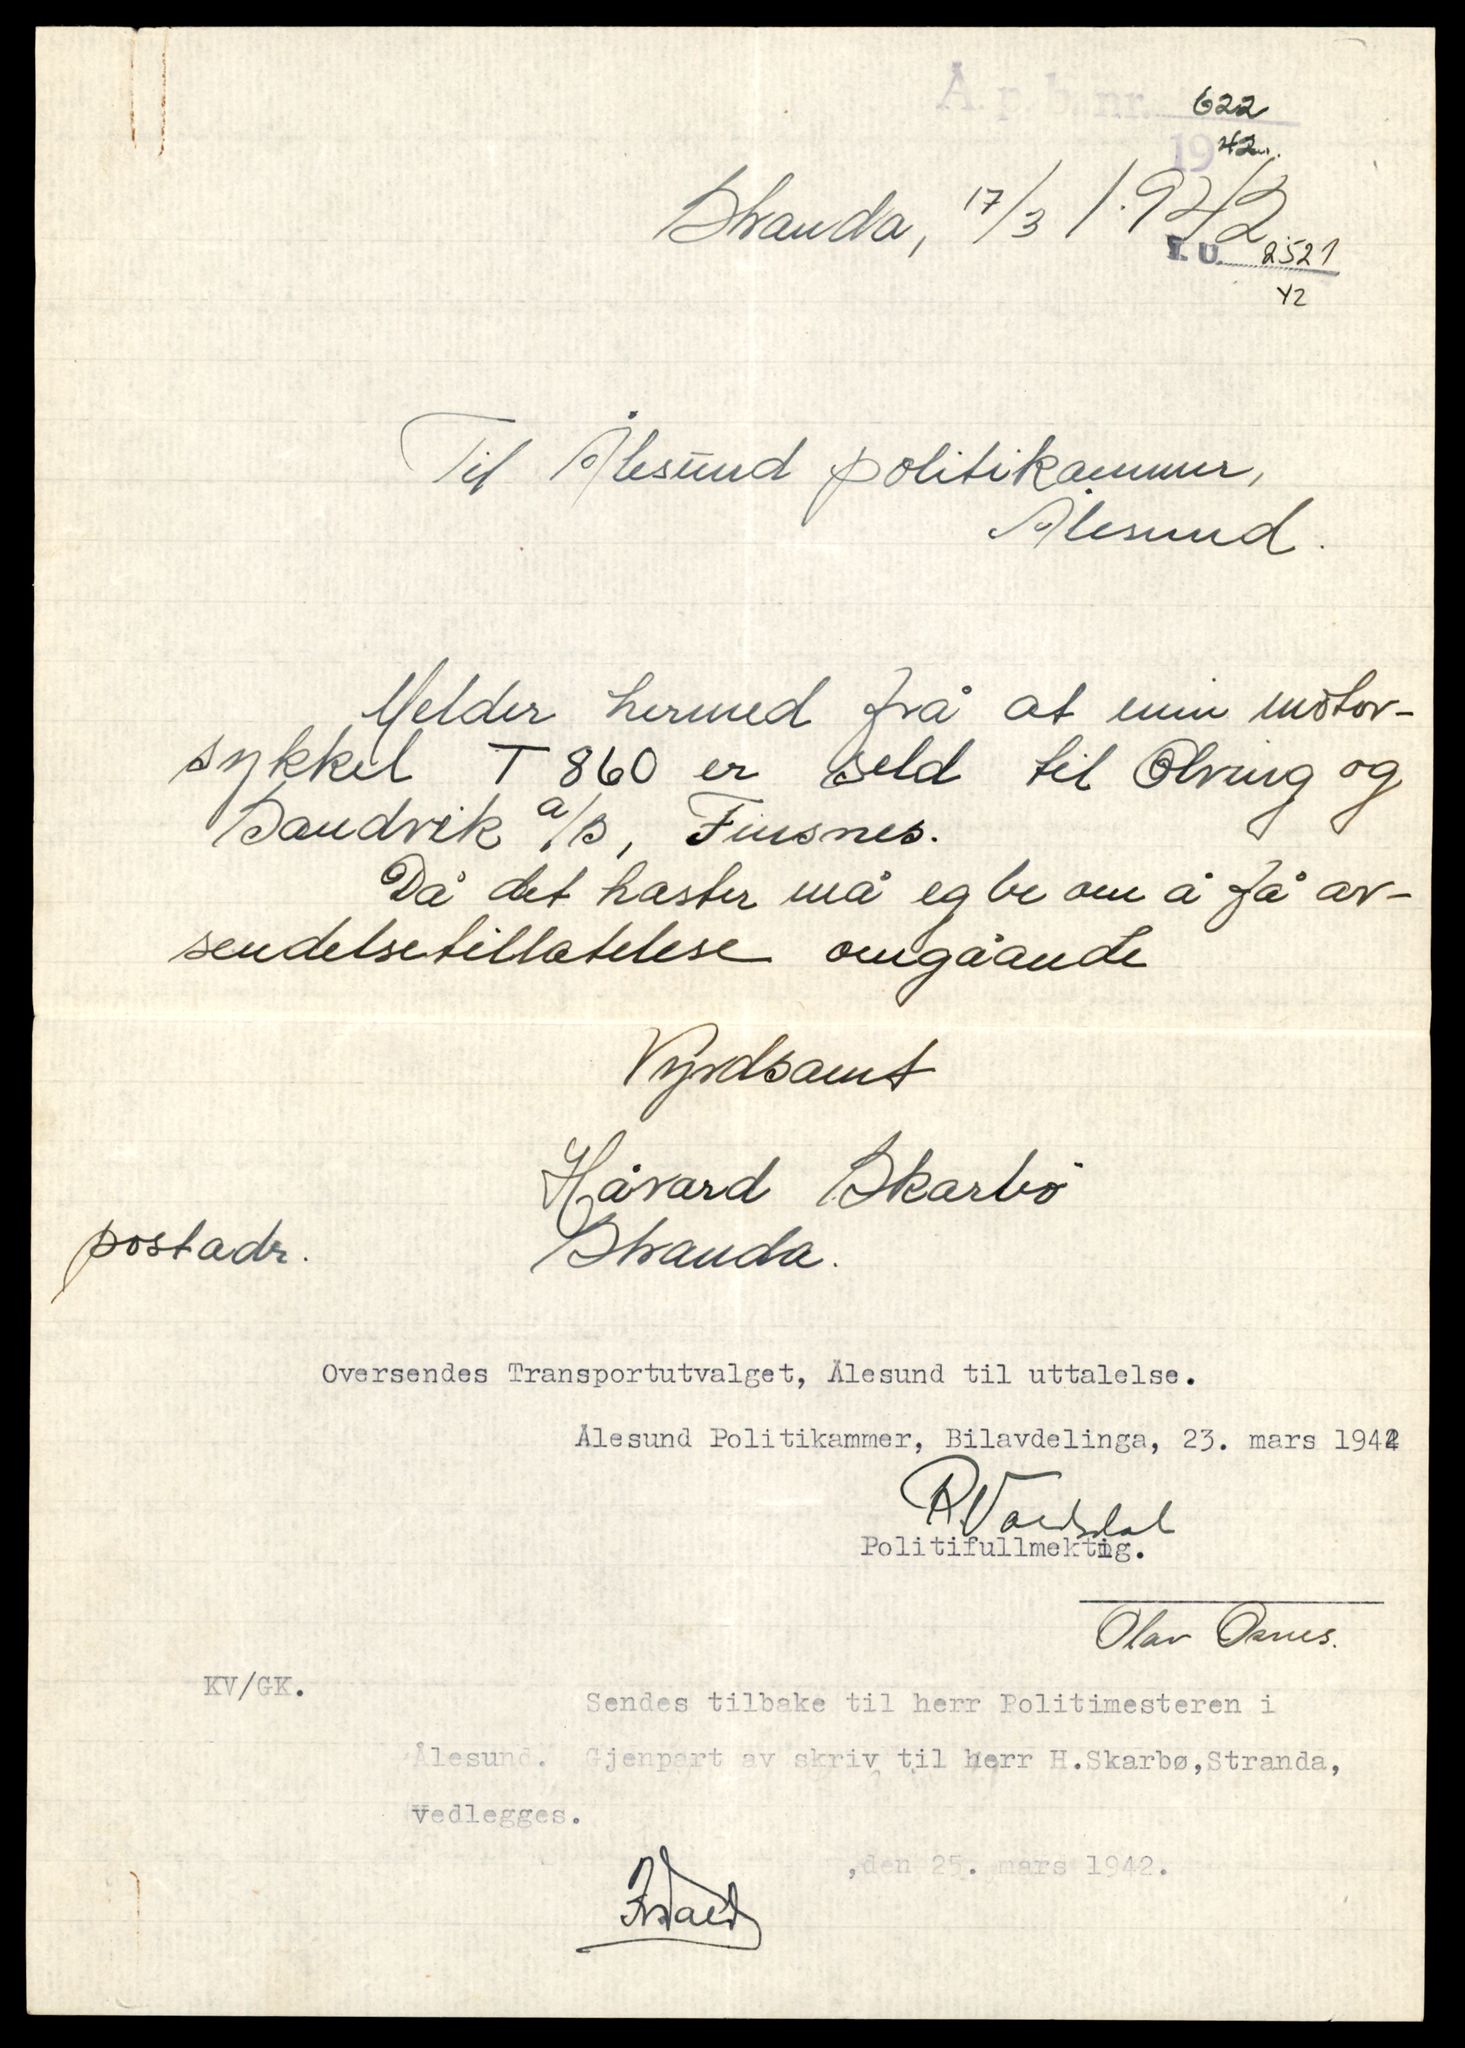 Å. p. b. nr. 622
1942.
Stranda, 17/3 1.942
T. U. 2521
42
Til Ålesund politikammer,
Ålesund.
Melder hermed frå at min motor-
sykkel T 860 er seld til Olving og
Sandvik a/s, Finsnes.
Då det haster må eg be om å få av-
sendelsetillatelese omgåande
Vyrdsamt
Håvard Skarbö
postadr. Stranda.
Oversendes Transportutvalget, Ålesund til uttalelse.
Ålesund Politikammer, Bilavdelinga, 23. mars 1942
Politifullmektig.
Olav Osnes.
KV/GK.
Sendes tilbake til herr Politimesteren i
Ålesund. Gjenpart av skriv til herr H.Skarbø,Stranda,
Vedlegges.
,den 25. mars 1942.